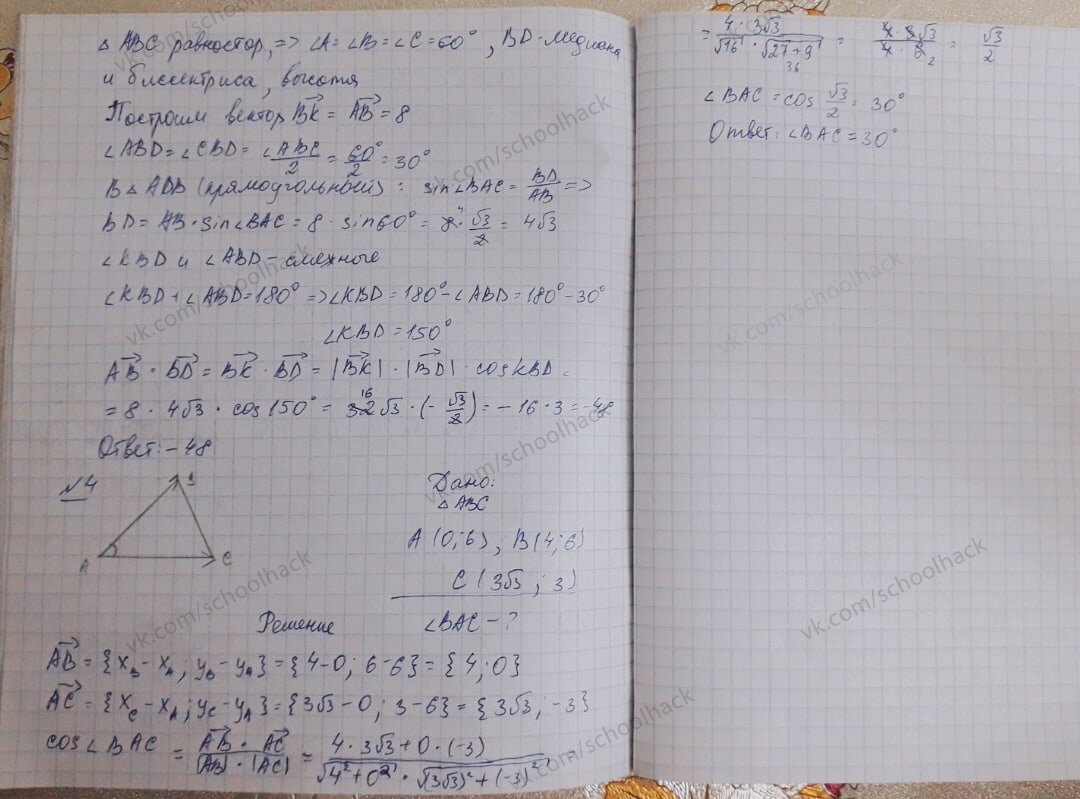 △ ABC равностор, => ∠A = ∠B = ∠C = 60°, BD - медиана
и биссектриса, высота
Построим вектор BK = AB = 8
∠ABD = ∠CBD = ∠ABC/2 = 60°/2 = 30°
В △ ADB (прямоугольный): sin∠BAC = BD/AB =>
BD = AB · sin∠BAC = 8 · sin60° = 8 4 · √3/2 = 4√3
∠KBD и ∠ABD - смежные
∠KBD + ∠ABD = 180° => ∠KBD = 180° - ∠ABD = 180° - 30°
∠KBD = 150°
AB · BD = BK · BD = |BK| · |BD| · cosKBD =
= 8 · 4√3 · cos150° = 32 16 √3 · (-√3/2) = -16 · 3 = -48
Ответ: -48
№4
B
A
C
Дано:
△ ABC
A (0; 6), B (4; 6)
C (3√3 ; 3)
∠BAC - ?
Решение
AB = {x_B - x_A ; y_B - y_A} = {4-0; 6-6} = {4; 0}
AC = {x_C - x_A ; y_C - y_A} = {3√3 - 0 ; 3-6} = {3√3 ; -3}
cos∠BAC = AB · AC / |AB| · |AC| = 4 · 3√3 + 0 · (-3) / √4² + 0² · √(3√3)² + (-3)²
= 4 · 3√3 / √16 · √27 + 9 36 = 4 · 3√3 / 4 · 6 2 = √3/2
∠BAC = cos √3/2 = 30°
Ответ: ∠BAC = 30°
vk.com/schoolhack
vk.com/schoolhack
vk.com/schoolhack
vk.com/schoolhack
vk.com/schoolhack
vk.com/schoolhack
vk.com/schoolhack
vk.com/schoolhack
vk.com/schoolhack